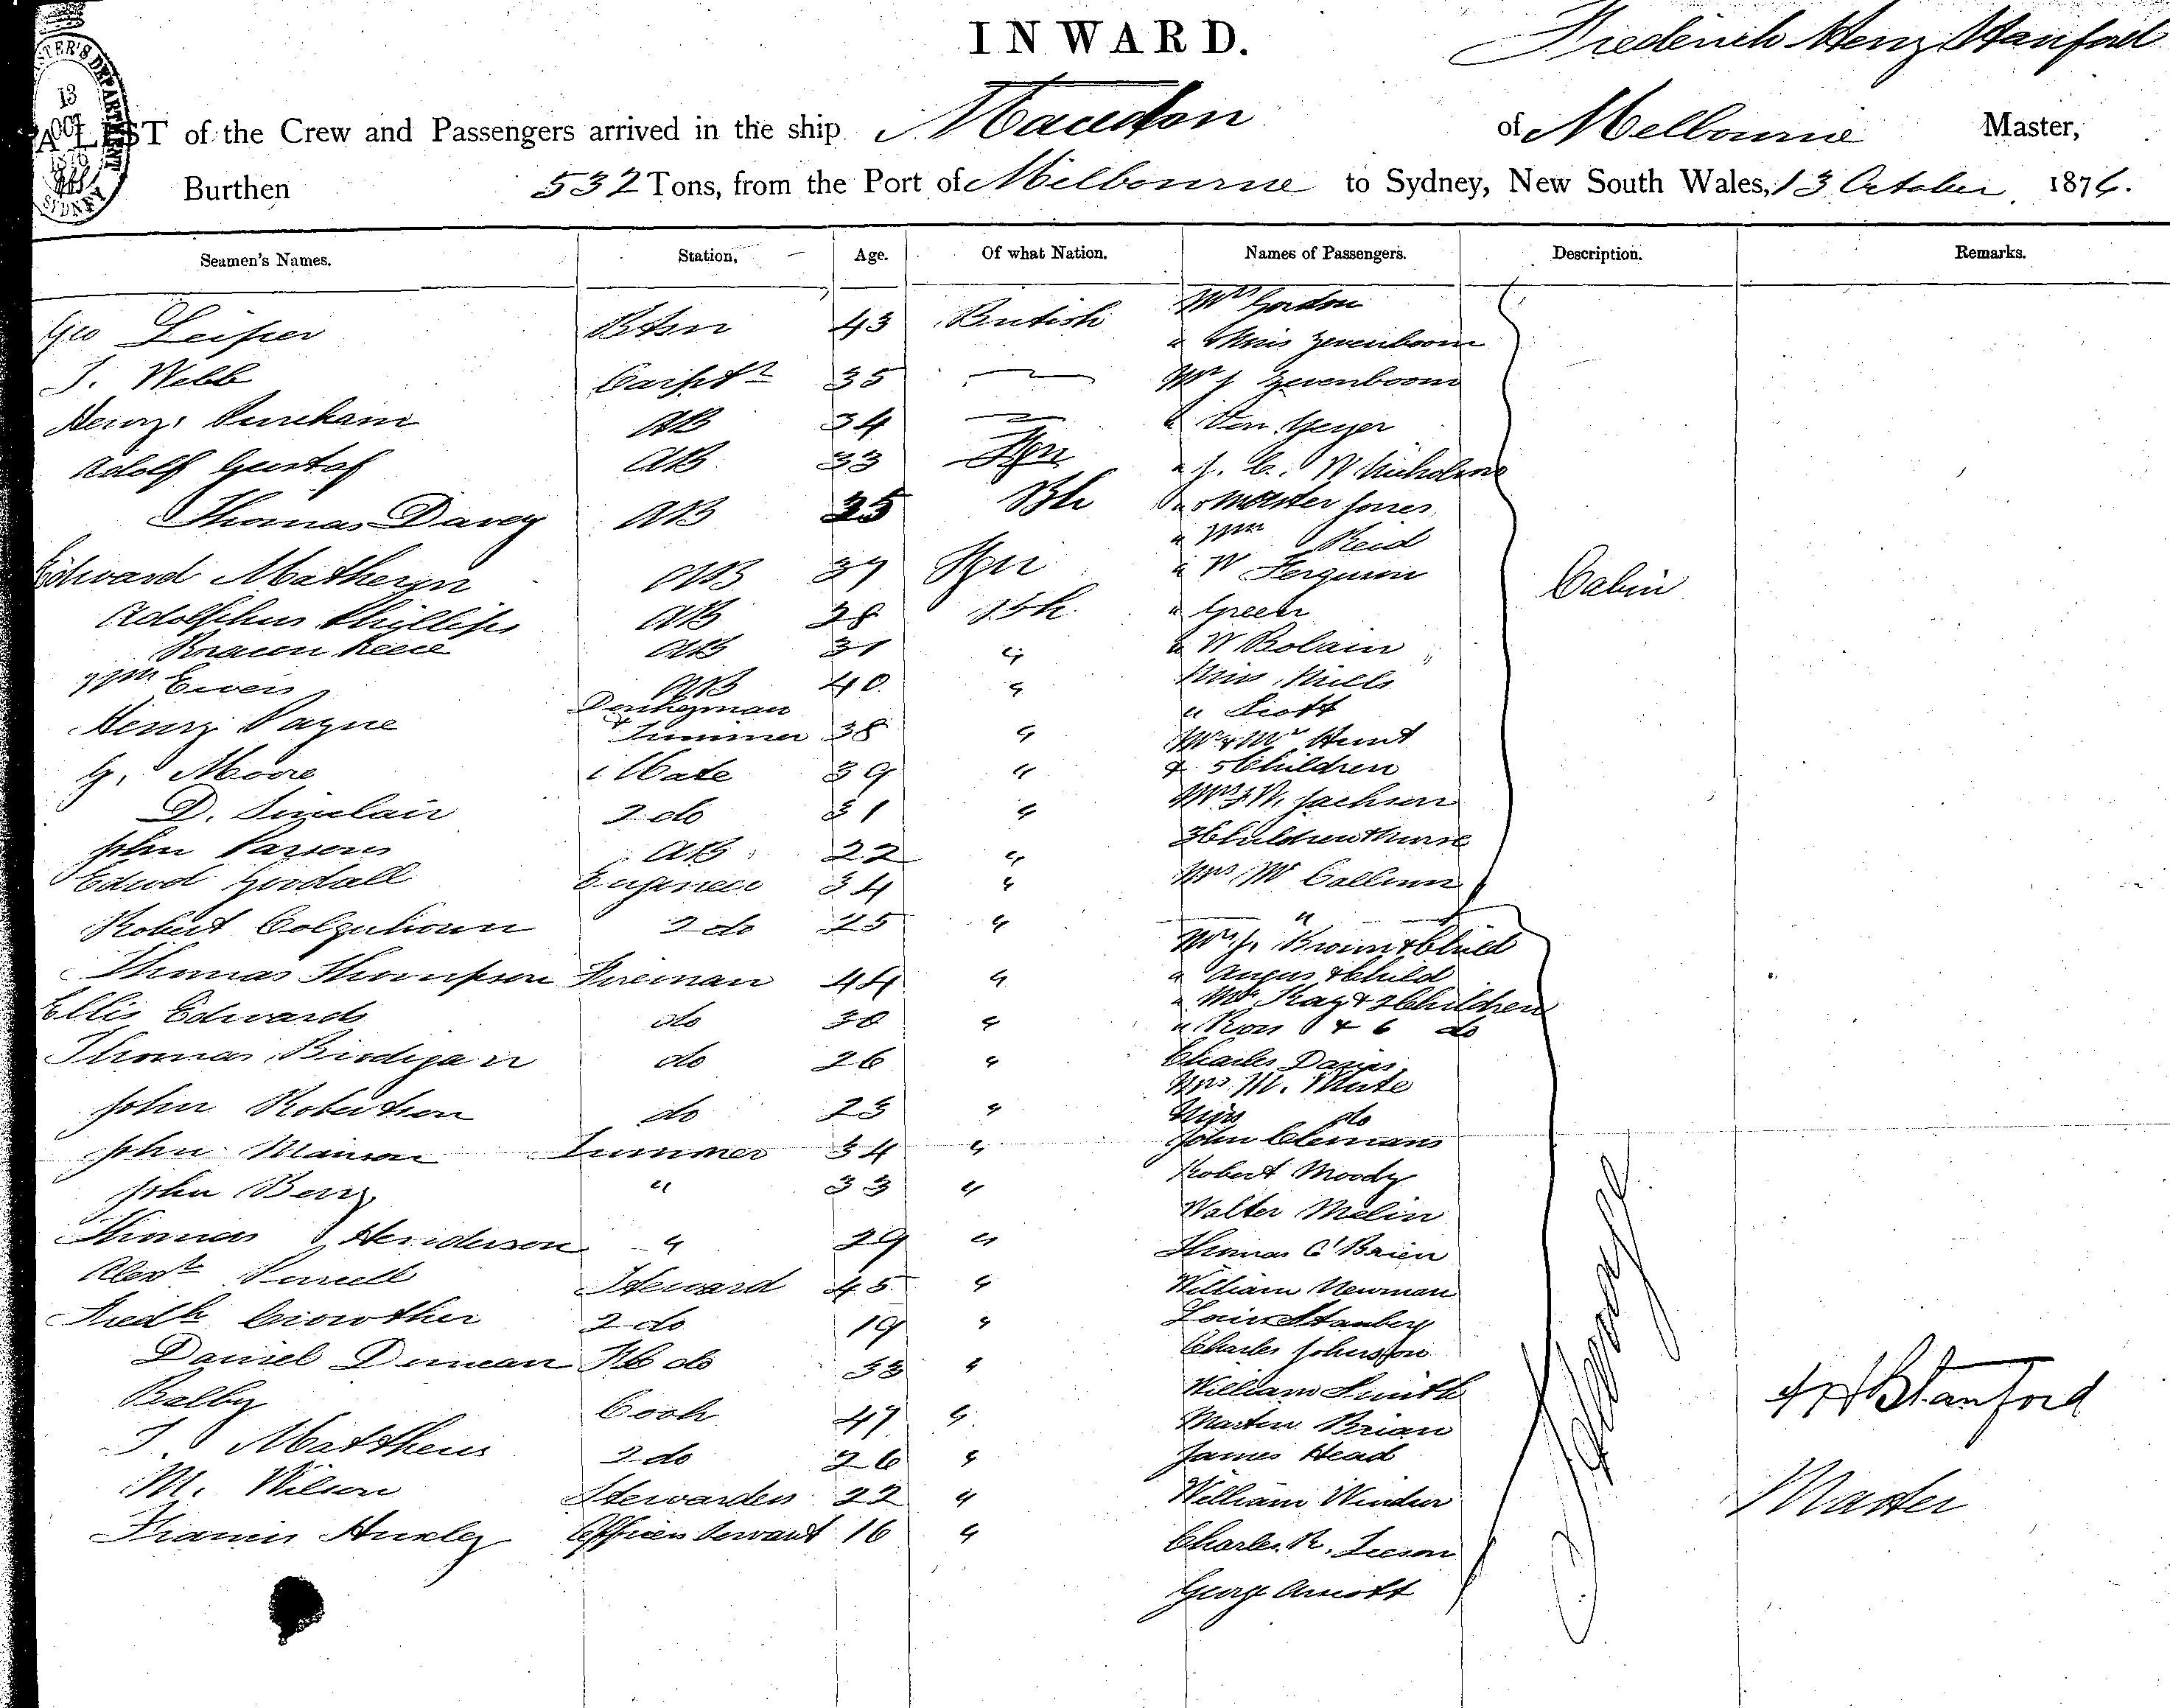 INWARD.
Frederick Henry Stanford
A LIST of the Crew and Passengers arrived in the ship Macedon of Melbourne Master,
Burthen 532 Tons, from the Port of Melbourne to Sydney, New South Wales, 13 October 1876.
13 OCT 1876 SYDNEY
Seamen's Names. Station, Age. Of what Nation. Names of Passengers. Description. Remarks.
Geo Leiper Btsn 43 British Mrs Gordon
" Miss Zevenboom
J. Webb Carptr 35 — Mr J Zevenboom
Henry 34 AB —
" Von Geyer
Adolf Gustaf AB 33 Fgn " J. C. W Nicholson
Thomas Davey AB 35 Bh " & Master Jones
" Wm Reid
Edward Mathe AB 37 Fgn " W Ferguson
Cabin
Adolphus Phillips AB 28 Bh " Green
Reece AB 31 " " W Bolain
Wm Ewen AB 40 " Miss Mills
" Scott
Henry Payne Donkeyman & Trimmer 38 " Mr & Mrs Hunt
& 5 Children
G. Moore 1 Mate 39 "
D. Sinclair 2 do 31 " Mrs J W. Jackson
3 Children & Nurse
John Parsons AB 22 "
Edwd Goodall Engineer 34 " Mrs McCallum
Robert Colquhoun 2 do 25 " "
Mrs J. Brown & Child
Thomas Thompson Fireman 44 " " Angus & Child
" Mrs Kay & 2 Children
Ellis Edwards do 30 " " Ross & 6 do
Thomas do 26 " Charles Davies
Mrs M. White
John Robertson do 23 " Miss do
John Clemans
John Manson Trimmer 34 "
Robert Moody
John Berry " 33 " Walter Melin
Thomas Henderson " 29 " Thomas O'Brien
Alexr Steward 45 " William Newman
Fredk Crowther 2 do 19 " Louis Stanbery
Charles Johnston
Daniel Duncan do 33 " William Smith
Balby Cook 47 " Martin Brian
J. Matthews 2 do 26 " James Head
M. Wilson Stewardess 22 " William Winder
Francis Huxley Officers Servant 16 " Charles R. Leeson
George Arnott
Steerage
F H Stanford
Master